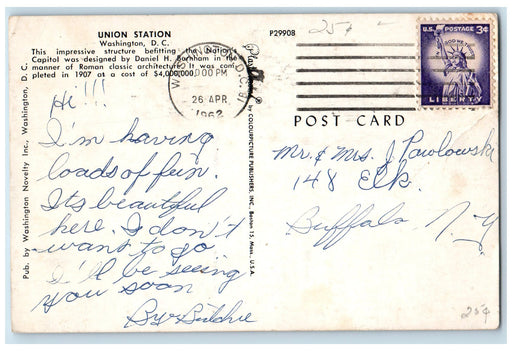 UNION STATION
Washington, D. C.
This impressive structure befitting the Nation's
Capitol was designed by Daniel H. Burnham in the
manner of Roman classic architecture. It was com-
pleted in 1907 at a cost of $4,000,000.
P29908
25¢
WASHINGTON, D.C.
PM
26 APR
1962
U.S. POSTAGE 3¢
IN GOD WE TRUST
LIBERTY
POST CARD
Pub. by Washington Novelty Inc., Washington, D. C.
Plastichrome ® by COLOURPICTURE PUBLISHERS, INC. Boston 15, Mass., U.S.A.
Hi!!!
I'm having
loads of fun.
Its beautiful
here. I don't
want to go
I'll be seeing
you soon
Mr. & Mrs. J. Pawlowski
148 Elk
Buffalo N.Y
25¢